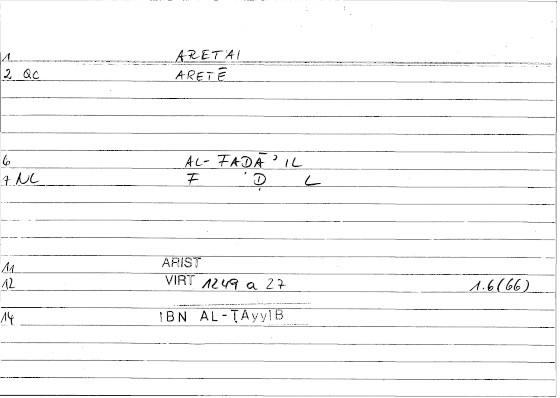 1 ARETAI
2 QC ARETĒ
6 AL-FAḌĀʾIL
7 NL F Ḍ L
11 ARIST
12 VIRT 1249 a 27 1.6(66)
14 IBN AL-ṬAyyIB